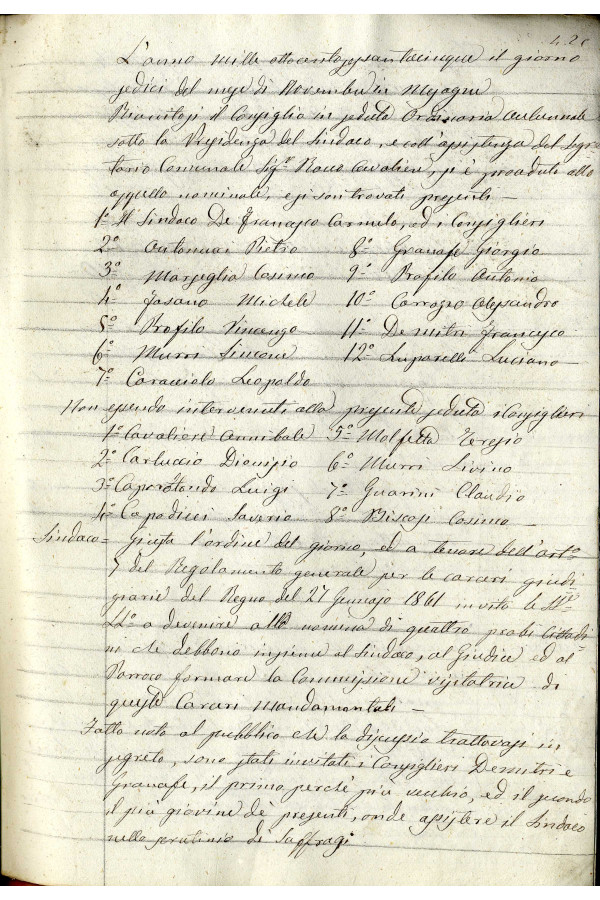 L'anno mille ottocentosessantacinque il giorno
sedici del mese di Novembre in Mesagne
Riunitosi il Consiglio in seduta Ordinaria autunnale
sotto la Presidenza del Sindaco, e coll'assistenza del Segre
tario Comunale Sig.r Rocco Cavaliere, si è proceduto allo
appello nominale, e si son trovati presenti —
1° Il Sindaco De Francesco Carmelo, ed i Consiglieri
2° Antonucci Pietro 8° Granafe Giorgio
3° Marseglia Cosimo 9° Profilo Antonio
4° Fasano Michele 10° Carrozzo Alessandro
5° Profilo Vincenzo 11° Demitri Francesco
6° Murri Simone 12° Luparelli Luciano —
7° Caracciolo Leopoldo
Non essendo intervenuti alla presente seduta i Consiglieri
1° Cavaliere Annibale 5° Molfetta Teresio
2° Carluccio Dionisio 6° Murri Livino
3° Caporotondo Luigi 7° Guarini Claudio
4° Capodieci Saverio 8° Biscosi Cosimo —
Sindaco = Giusta l'ordine del giorno, ed a tenore dell'art.°
5 del Regolamento generale per le carceri giudi
ziarie del Regno del 27 Gennajo 1861 invito le
a devenire alla nomina di quattro probi Cittadi
ni che debbono insieme al Sindaco, al Giudice ed al
Parroco formare la Commissione visitatrice di
queste Carceri Mandamentali —
Fatto noto al pubblico che la discussio trattavasi in
segreto, sono stati invitati i Consiglieri Demitri e
Granafe, il primo perchè più vecchio, ed il secondo
il più giovine de' presenti, onde assistere il Sindaco
nello scrutinio di Suffragi